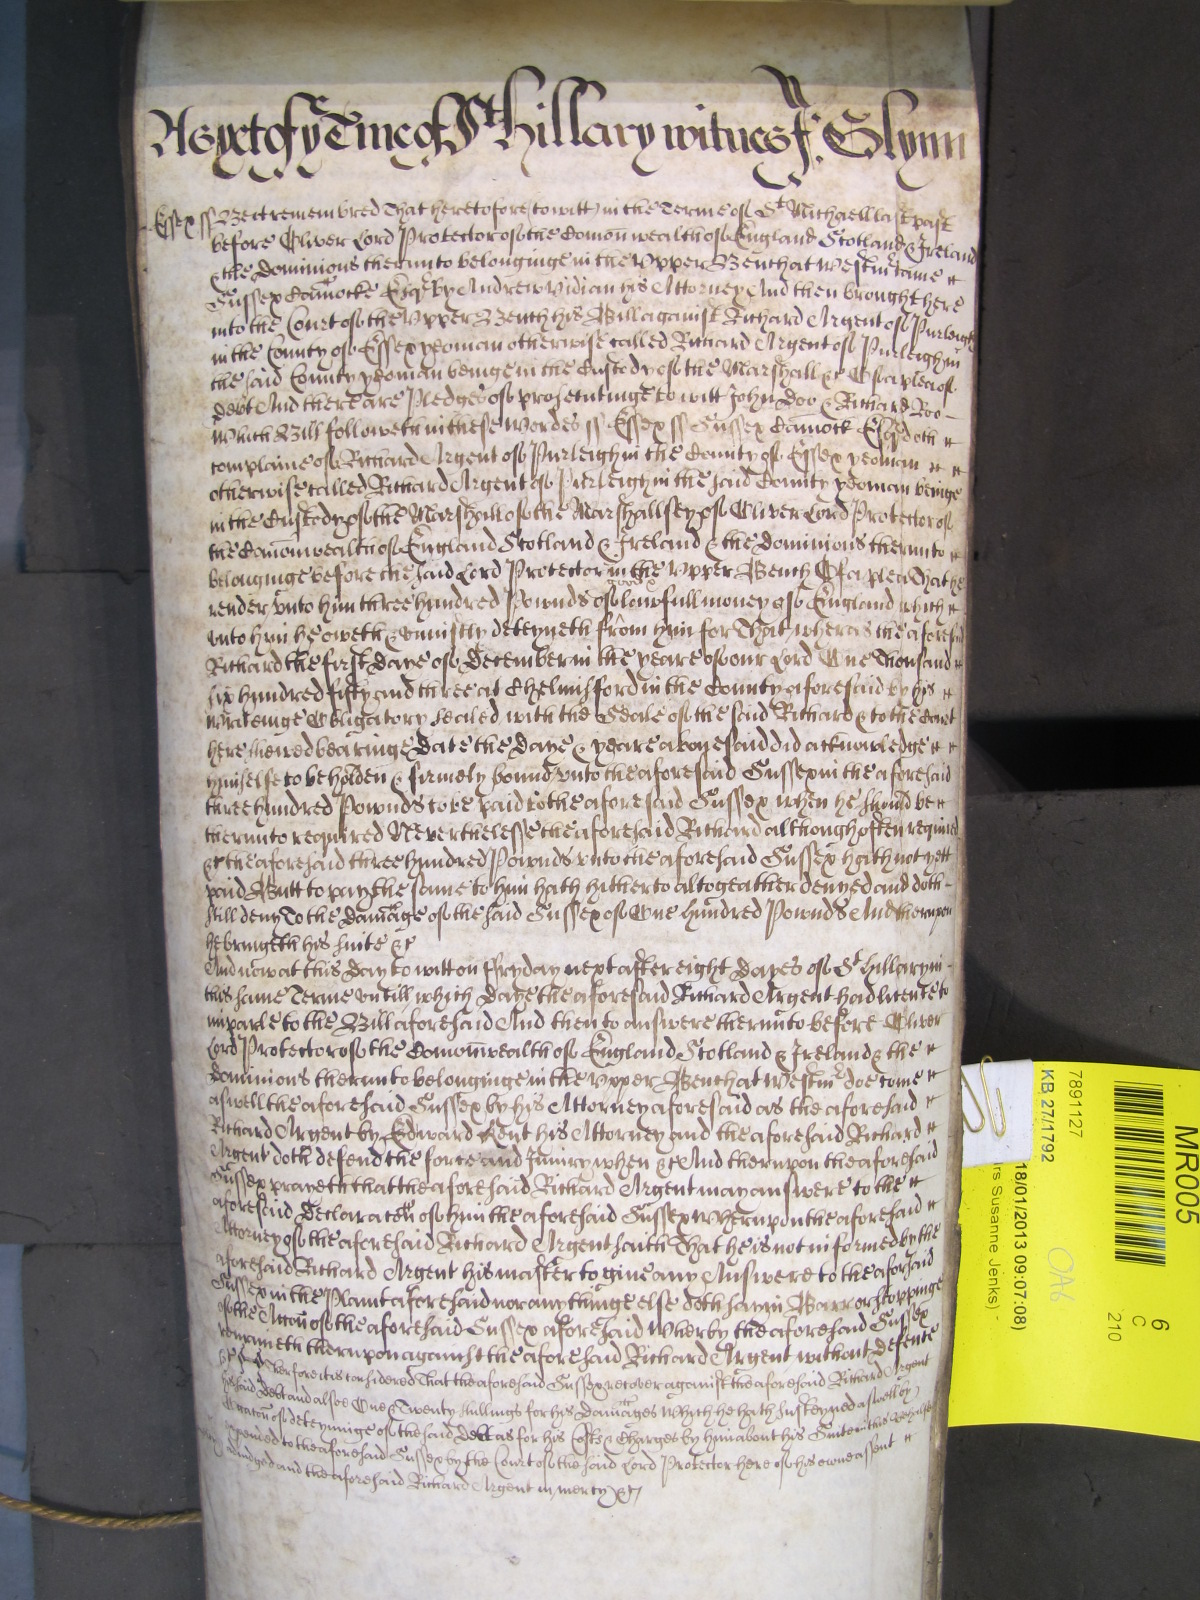 As yet of ye Terme of St Hillary witnes J: Glynn
Essex ss Bee it remembred That heretofore (to witt) in the Terme of St Michaell last past
before Oliver Lord Protector of the Comon wealth of England Scotland & Ireland
& the Dominions therunto belonginge in the Upper Bench at Westmr came
Gussex Camocke Esqr by Andrew Vidian his Attorney And then brought here
into the Court of the Upper Bench his Bill against Richard Argent of Purleigh
in the County of Essex yeoman otherwise called Richard Argent of Purleigh in
the said County yeoman beinge in the Custody of the Marshall &c Of a plea of
debt And there are Pledges of prosecutinge to witt John Doo & Richard Roo
Which Bill followeth in these wordes ss Essex ss Gussex Camock Esqr doth
complaine of Richard Argent of Purleigh in the County of Essex yeoman
otherwise called Richard Argent of Purleigh in the said County yeoman beinge
in the Custody of the Marshall of the Marshallsey of Oliver Lord Protector of
the Comonwealth of England Scotland & Ireland & the Dominions therunto
belonginge before the said Lord Protector in the Upper Bench Of a plea That he
render unto him three hundred Pownds of lawfull money of England which
unto him he oweth & uniustly deteyneth from him for That wheras the aforesd
Richard the first Daye of December in the yeare of our Lord One Thousand
six hundred fifty and three at Chelmisford in the County aforesaid by his
writeinge Obligatory sealed with the Seale of the said Richard & to the Court
here shewed bearinge Date the Daye & yeare abovesaid did acknowledge
hymselfe to be holden & firmely bound unto the aforesaid Gussex in the aforesaid
three hundred Pownds to be paid to the aforesaid Gussex when he should be
therunto required Neverthelesse the aforesaid Richard although often required
&c the aforesaid three hundred Pownds unto the aforesaid Gussex hath not yett
paid Butt to pay the same to him hath hitherto altogeather denyed and doth
still deny To the Damage of the said Gussex of One hundred Pownds And therupon
he bringeth his suite &c
And now at this Day to witt on Fryday next after eight Dayes of St Hillary in
this same Terme untill which Daye the aforesaid Richard Argent had licence to
imparle to the Bill aforesaid And then to answere therunto before Oliver
Lord Protector of the Comonwealth of England Scotland & Ireland & the
Dominions therunto belonginge in the Upper Bench at Westmr doe come
aswell the aforesaid Gussex by his Attorney aforesaid as the aforesaid
Richard Argent by Edward Kent his Attorney and the aforesaid Richard
Argent doth defend the force and Iniury when &c And therupon the aforesaid
Gussex prayeth that the aforesaid Richard Argent may answere to the
aforesaid Declaracon of him the aforesaid Gussex Wherupon the aforesaid
Attorney of the aforesaid Richard Argent saith That he is not informed by the
aforesaid Richard Argent his master to give any Answere to the aforsaid
Gussex in the Plaint aforesaid nor any thinge else doth say in Barr or stoppinge
of the Accon of the aforesaid Gussex aforesaid Wherby the aforesaid Gussex
remaineth therupon against the aforesaid Richard Argent without defence
Therfore it is considered That the aforesaid Gussex recover against the aforesaid Richard Argent
his said Debt and alsoe One & Twenty shillings for his Damages Which he hath susteyned aswell by
Occacon of deteyninge of the said Debt as for his Costs & Charges by him about his Suite in this behalfe
to the aforesaid Gussex by the Court of the said Lord Protector here of his owne assent
adiudged and the aforesaid Richard Argent in mercy &c
MR005
6
C
210
7891127
KB 27/1792
18/01/2013 09:07:08)
rs Susanne Jenks) -
OA6